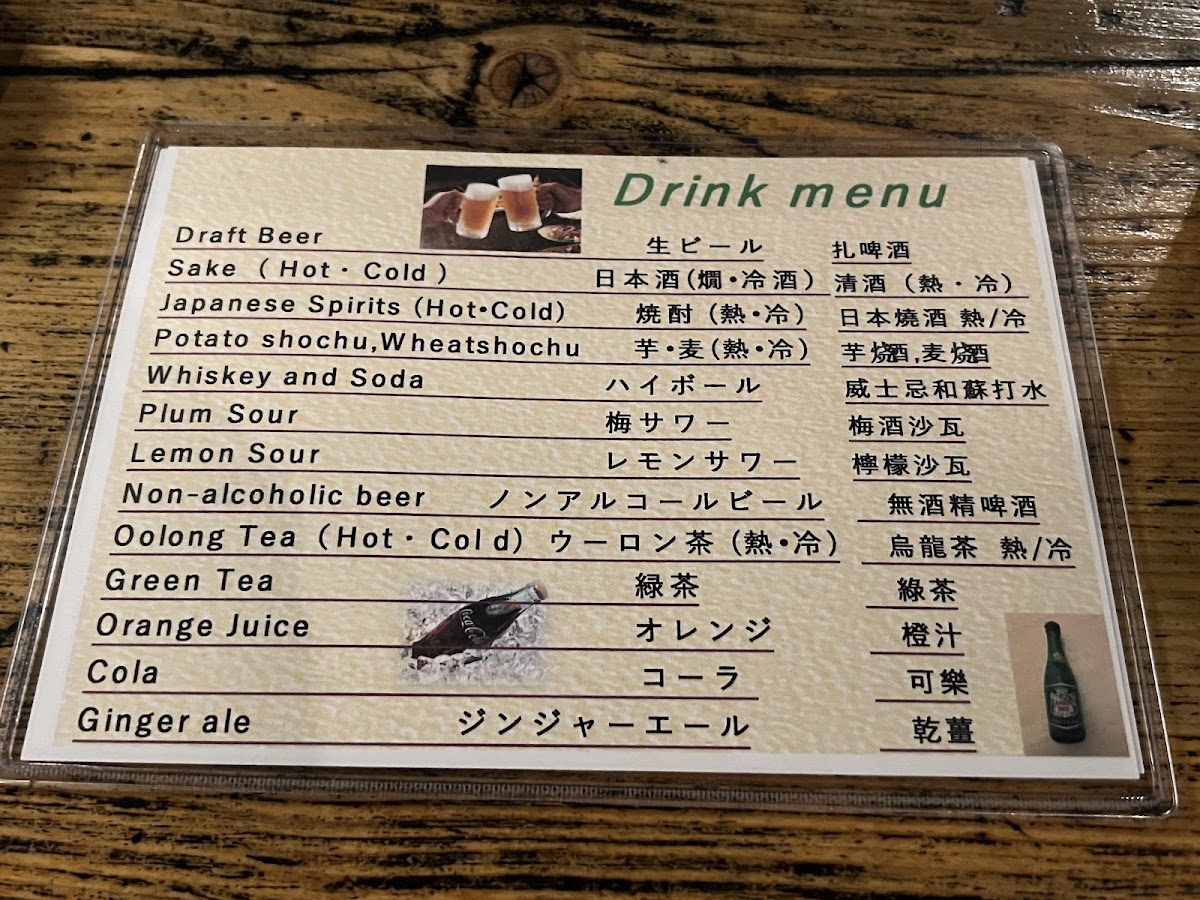 Drink menu
Draft Beer 生ビール 扎啤酒
Sake ( Hot・Cold ) 日本酒(燗・冷酒) 清酒 (熱・冷)
Japanese Spirits (Hot・Cold) 焼酎 (熱・冷) 日本燒酒 熱/冷
Potato shochu,Wheatshochu 芋・麦(熱・冷) 芋燒酒,麦燒酒
Whiskey and Soda ハイボール 威士忌和蘇打水
Plum Sour 梅サワー 梅酒沙瓦
Lemon Sour レモンサワー 檸檬沙瓦
Non-alcoholic beer ノンアルコールビール 無酒精啤酒
Oolong Tea (Hot・Cold) ウーロン茶 (熱・冷) 烏龍茶 熱/冷
Green Tea 緑茶 綠茶
Orange Juice オレンジ 橙汁
Cola コーラ 可樂
Ginger ale ジンジャーエール 乾薑
Coca-Cola